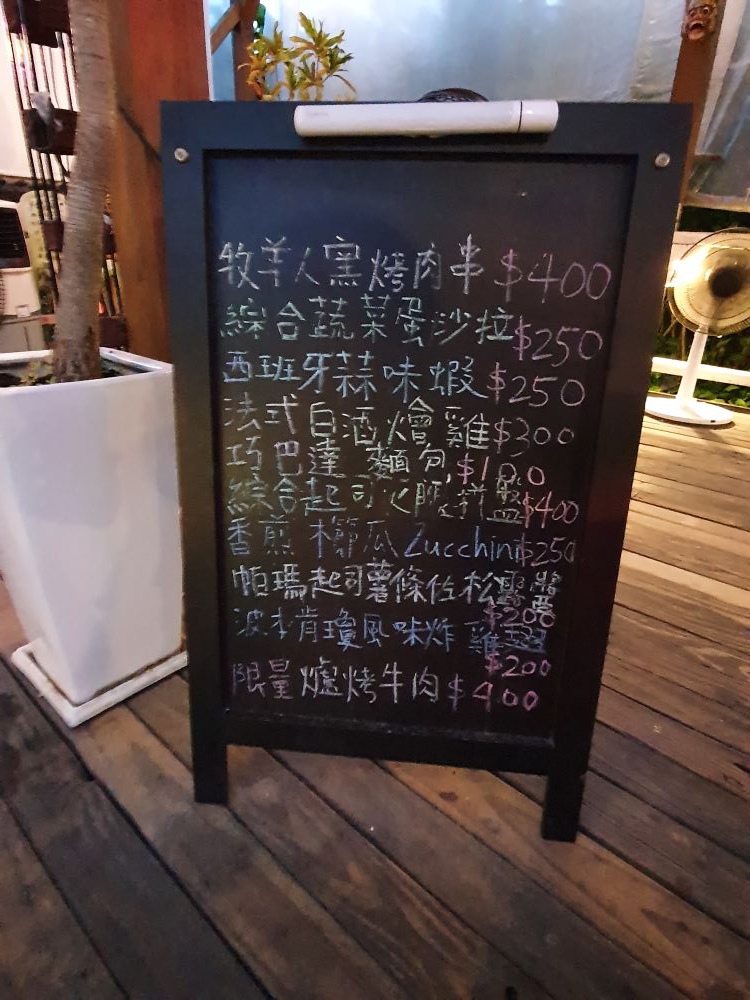 牧羊人窯烤肉串 $400
綜合蔬菜蛋沙拉 $250
西班牙蒜味蝦 $250
法式白酒燴雞 $300
巧巴達麵包 $100
綜合起司火腿拼盤 $400
香煎櫛瓜 Zucchini $250
帕瑪起司薯條佐松露醬
$200
波本肯瓊風味炸雞翅
$200
限量爐烤牛肉 $400